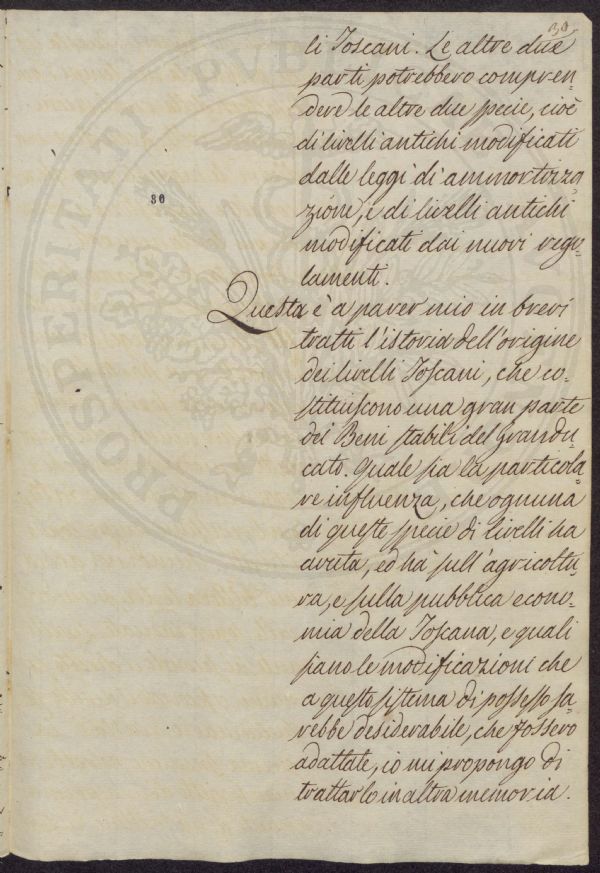 30
li Toscani. Le altre due
parti potrebbero compren-
dere le altre due specie, cioè
di livelli antichi modificati
dalle leggi di ammortizza-
zione, e di livelli antichi
modificati dai nuovi rego-
lamenti.
Questa è a parer mio in brevi
tratti l'istoria dell'origine
dei livelli Toscani, che co-
stituiscono una gran parte
dei Beni stabili del Grandu-
cato. Quale sia la particola-
re influenza, che ognuna
di queste specie di livelli ha
avuta, ed hà sull'agricoltu-
ra, e sulla pubblica econo-
mia della Toscana, e quali
siano le modificazioni che
a questo sistema di possesso sa-
rebbe desiderabile, che fossero
adattate, io mi propongo di
trattarlo in altra memoria.
30
PROSPERITATI PUB